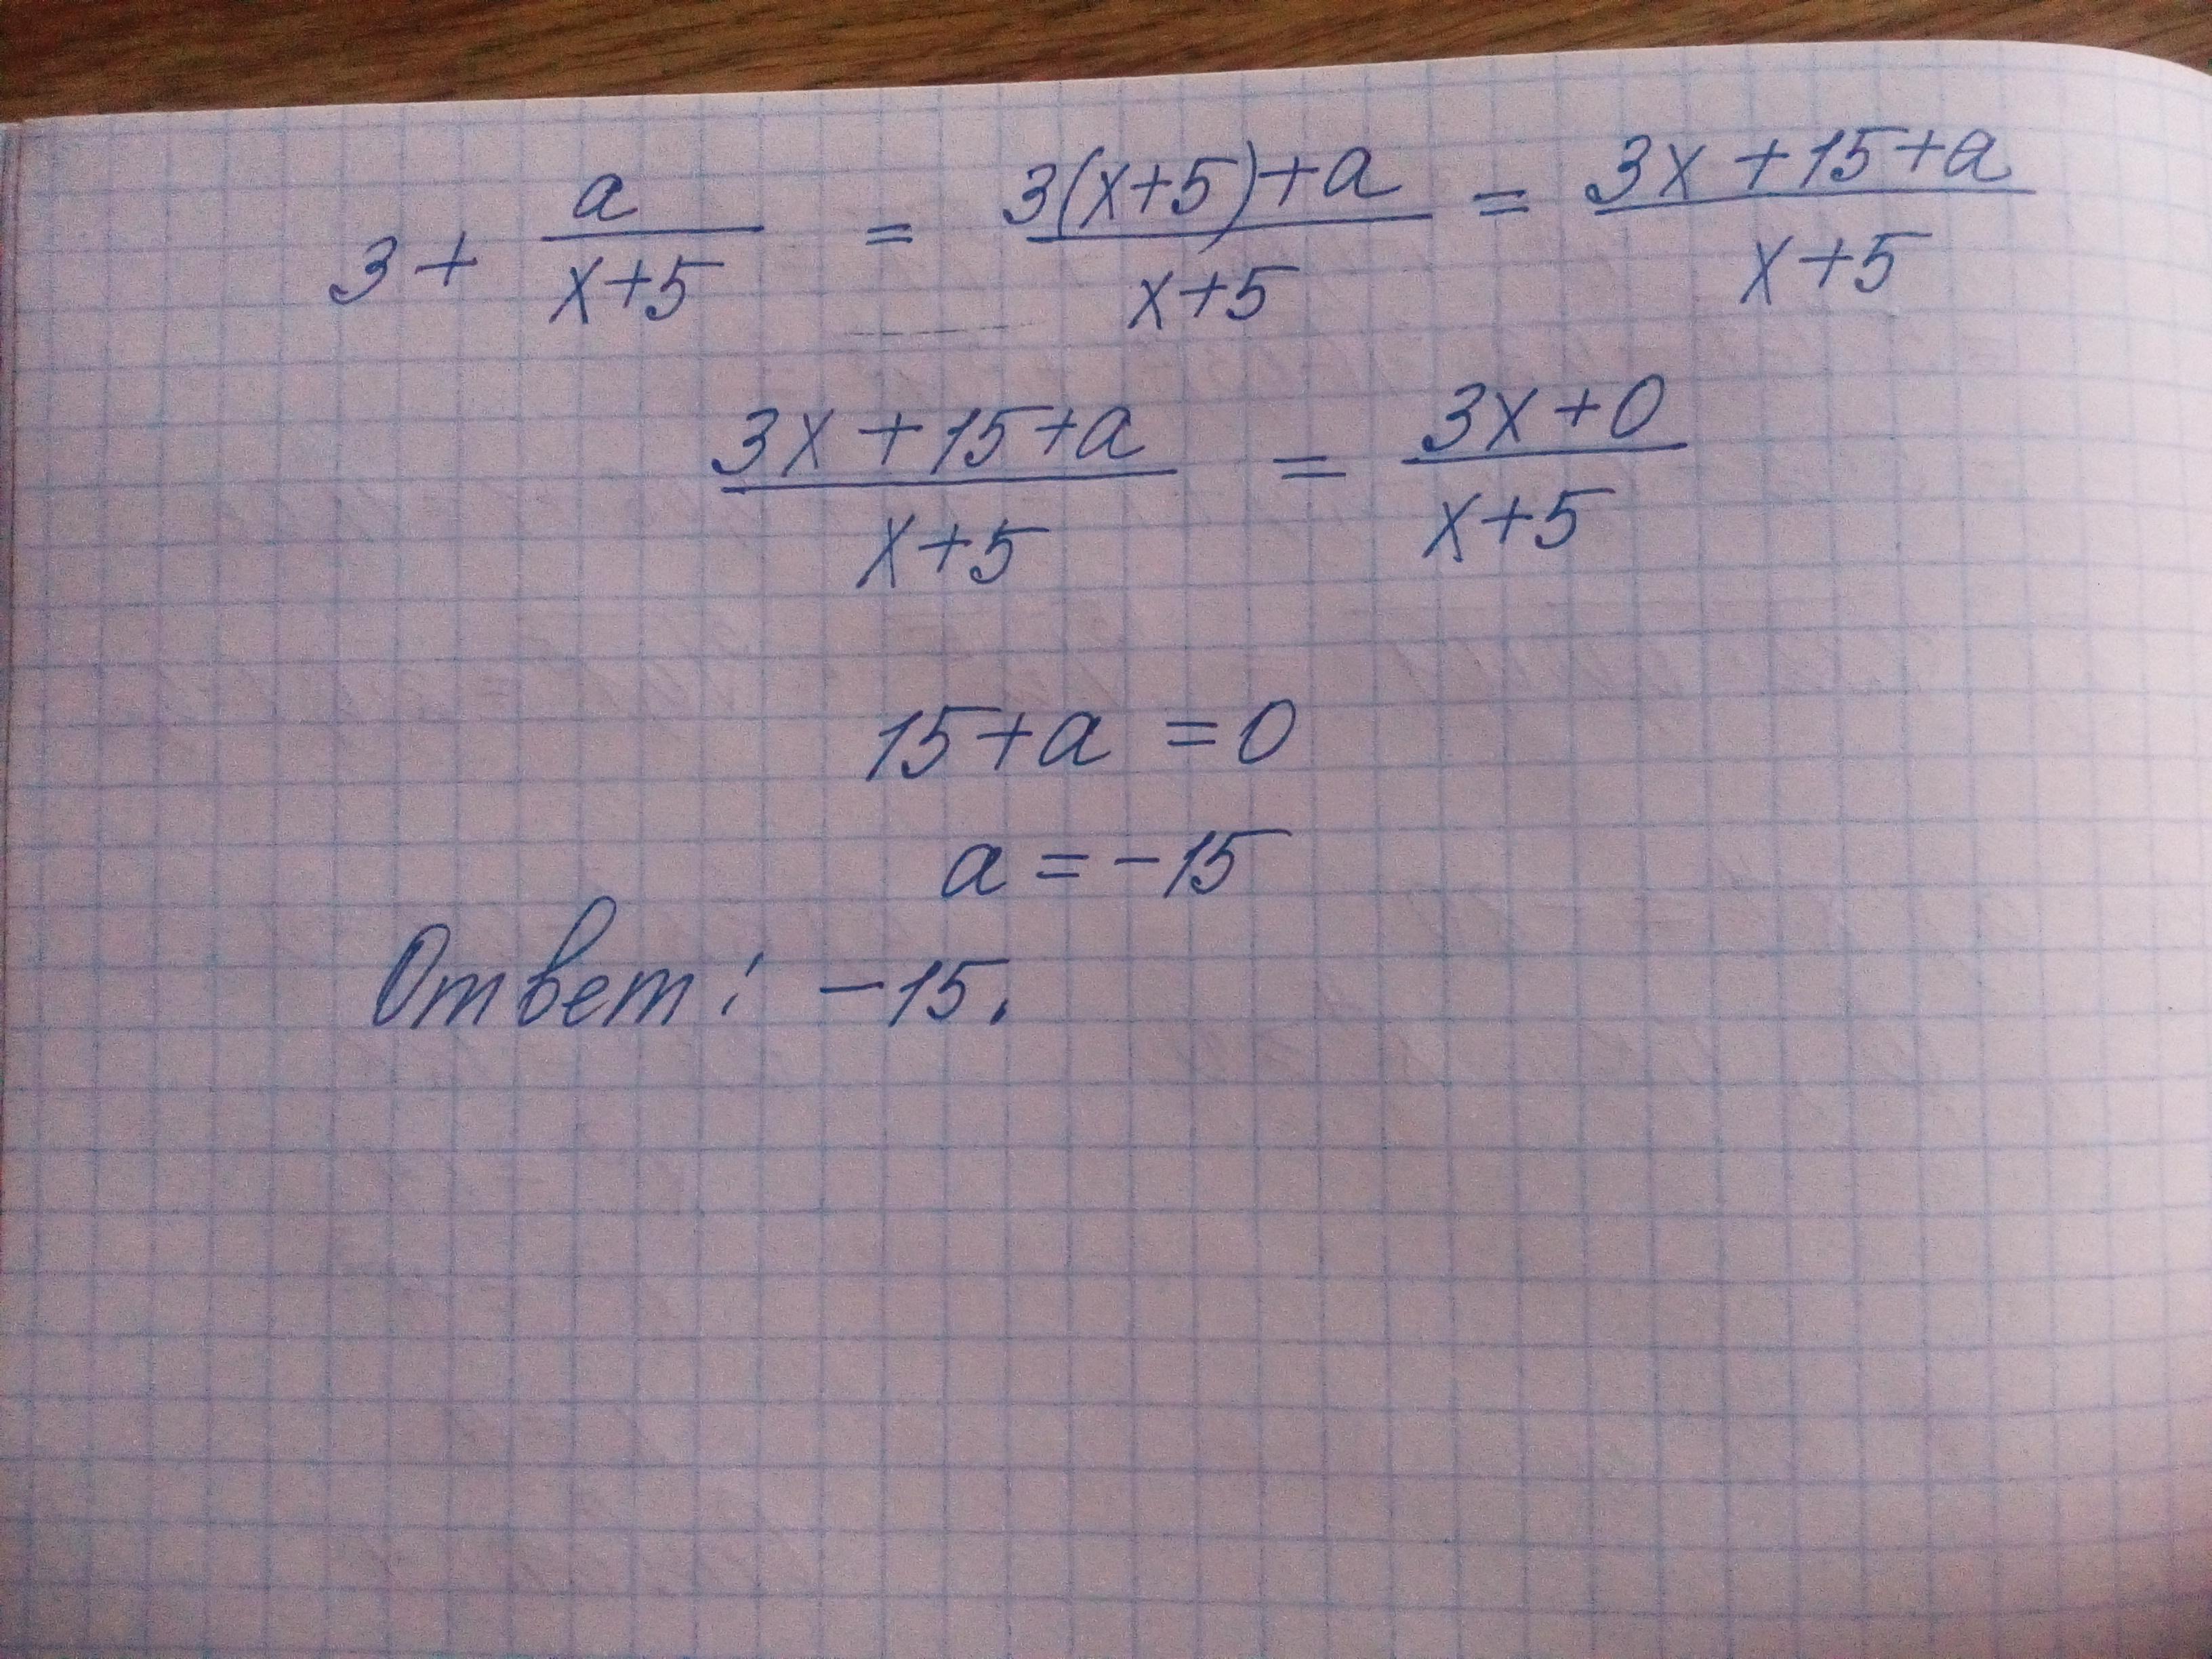 3 + a/(x+5) = (3(x+5)+a)/(x+5) = (3x+15+a)/(x+5)
(3x+15+a)/(x+5) = (3x+0)/(x+5)
15+a = 0
a = -15
Ответ: -15.